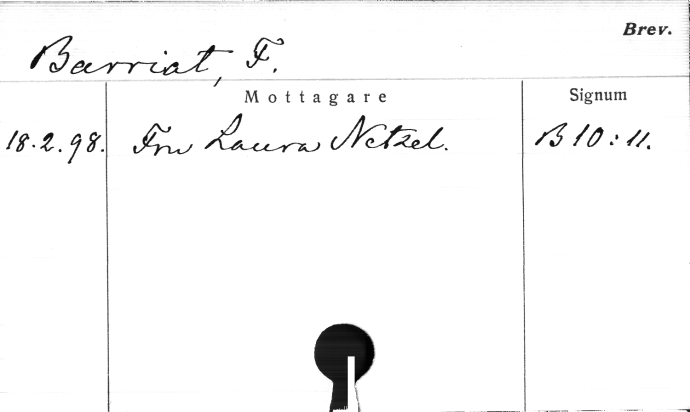 Brev.
Barriat, F.
Mottagare
Signum
18.2.98. Fru Laura Netzel. B 10:11.